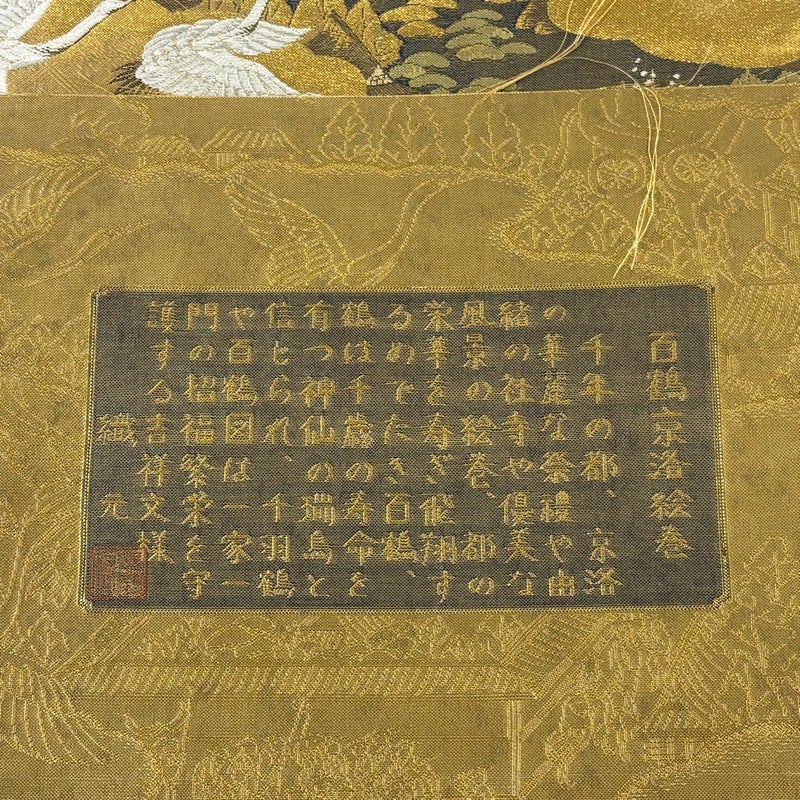 百鶴京洛絵巻
千年の都、京洛
の華麗な祭禮や由
緒の社寺や優美な
風景の絵巻、都の
栄華を寿ぎ飛翔す
るめでたき百鶴、
鶴は千歳の寿命を
有つ神仙の瑞鳥と
信とられ、千羽鶴
や百鶴図は一家一
門の招福繁栄を守
護する吉祥文様
織元